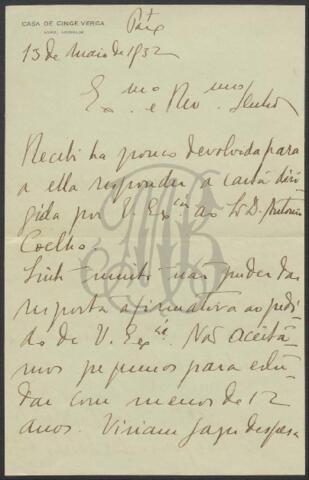 CASA DE CINGEVERGA
Pax
13 de Maio de 1932
Ex.mo e Rev.mo Senhor
Recebi ha pouco devolvida para
a ella responder a carta diri-
gida por V. Ex.cia ao Sr D. Antonio
Coelho.
Sinto muito não puder dar
resposta afirmativa ao pedi-
do de V. Ex.cia. Nós aceitá-
mos pequenos para estu-
dar com menos de 12
anos. Viriam fazer despesa